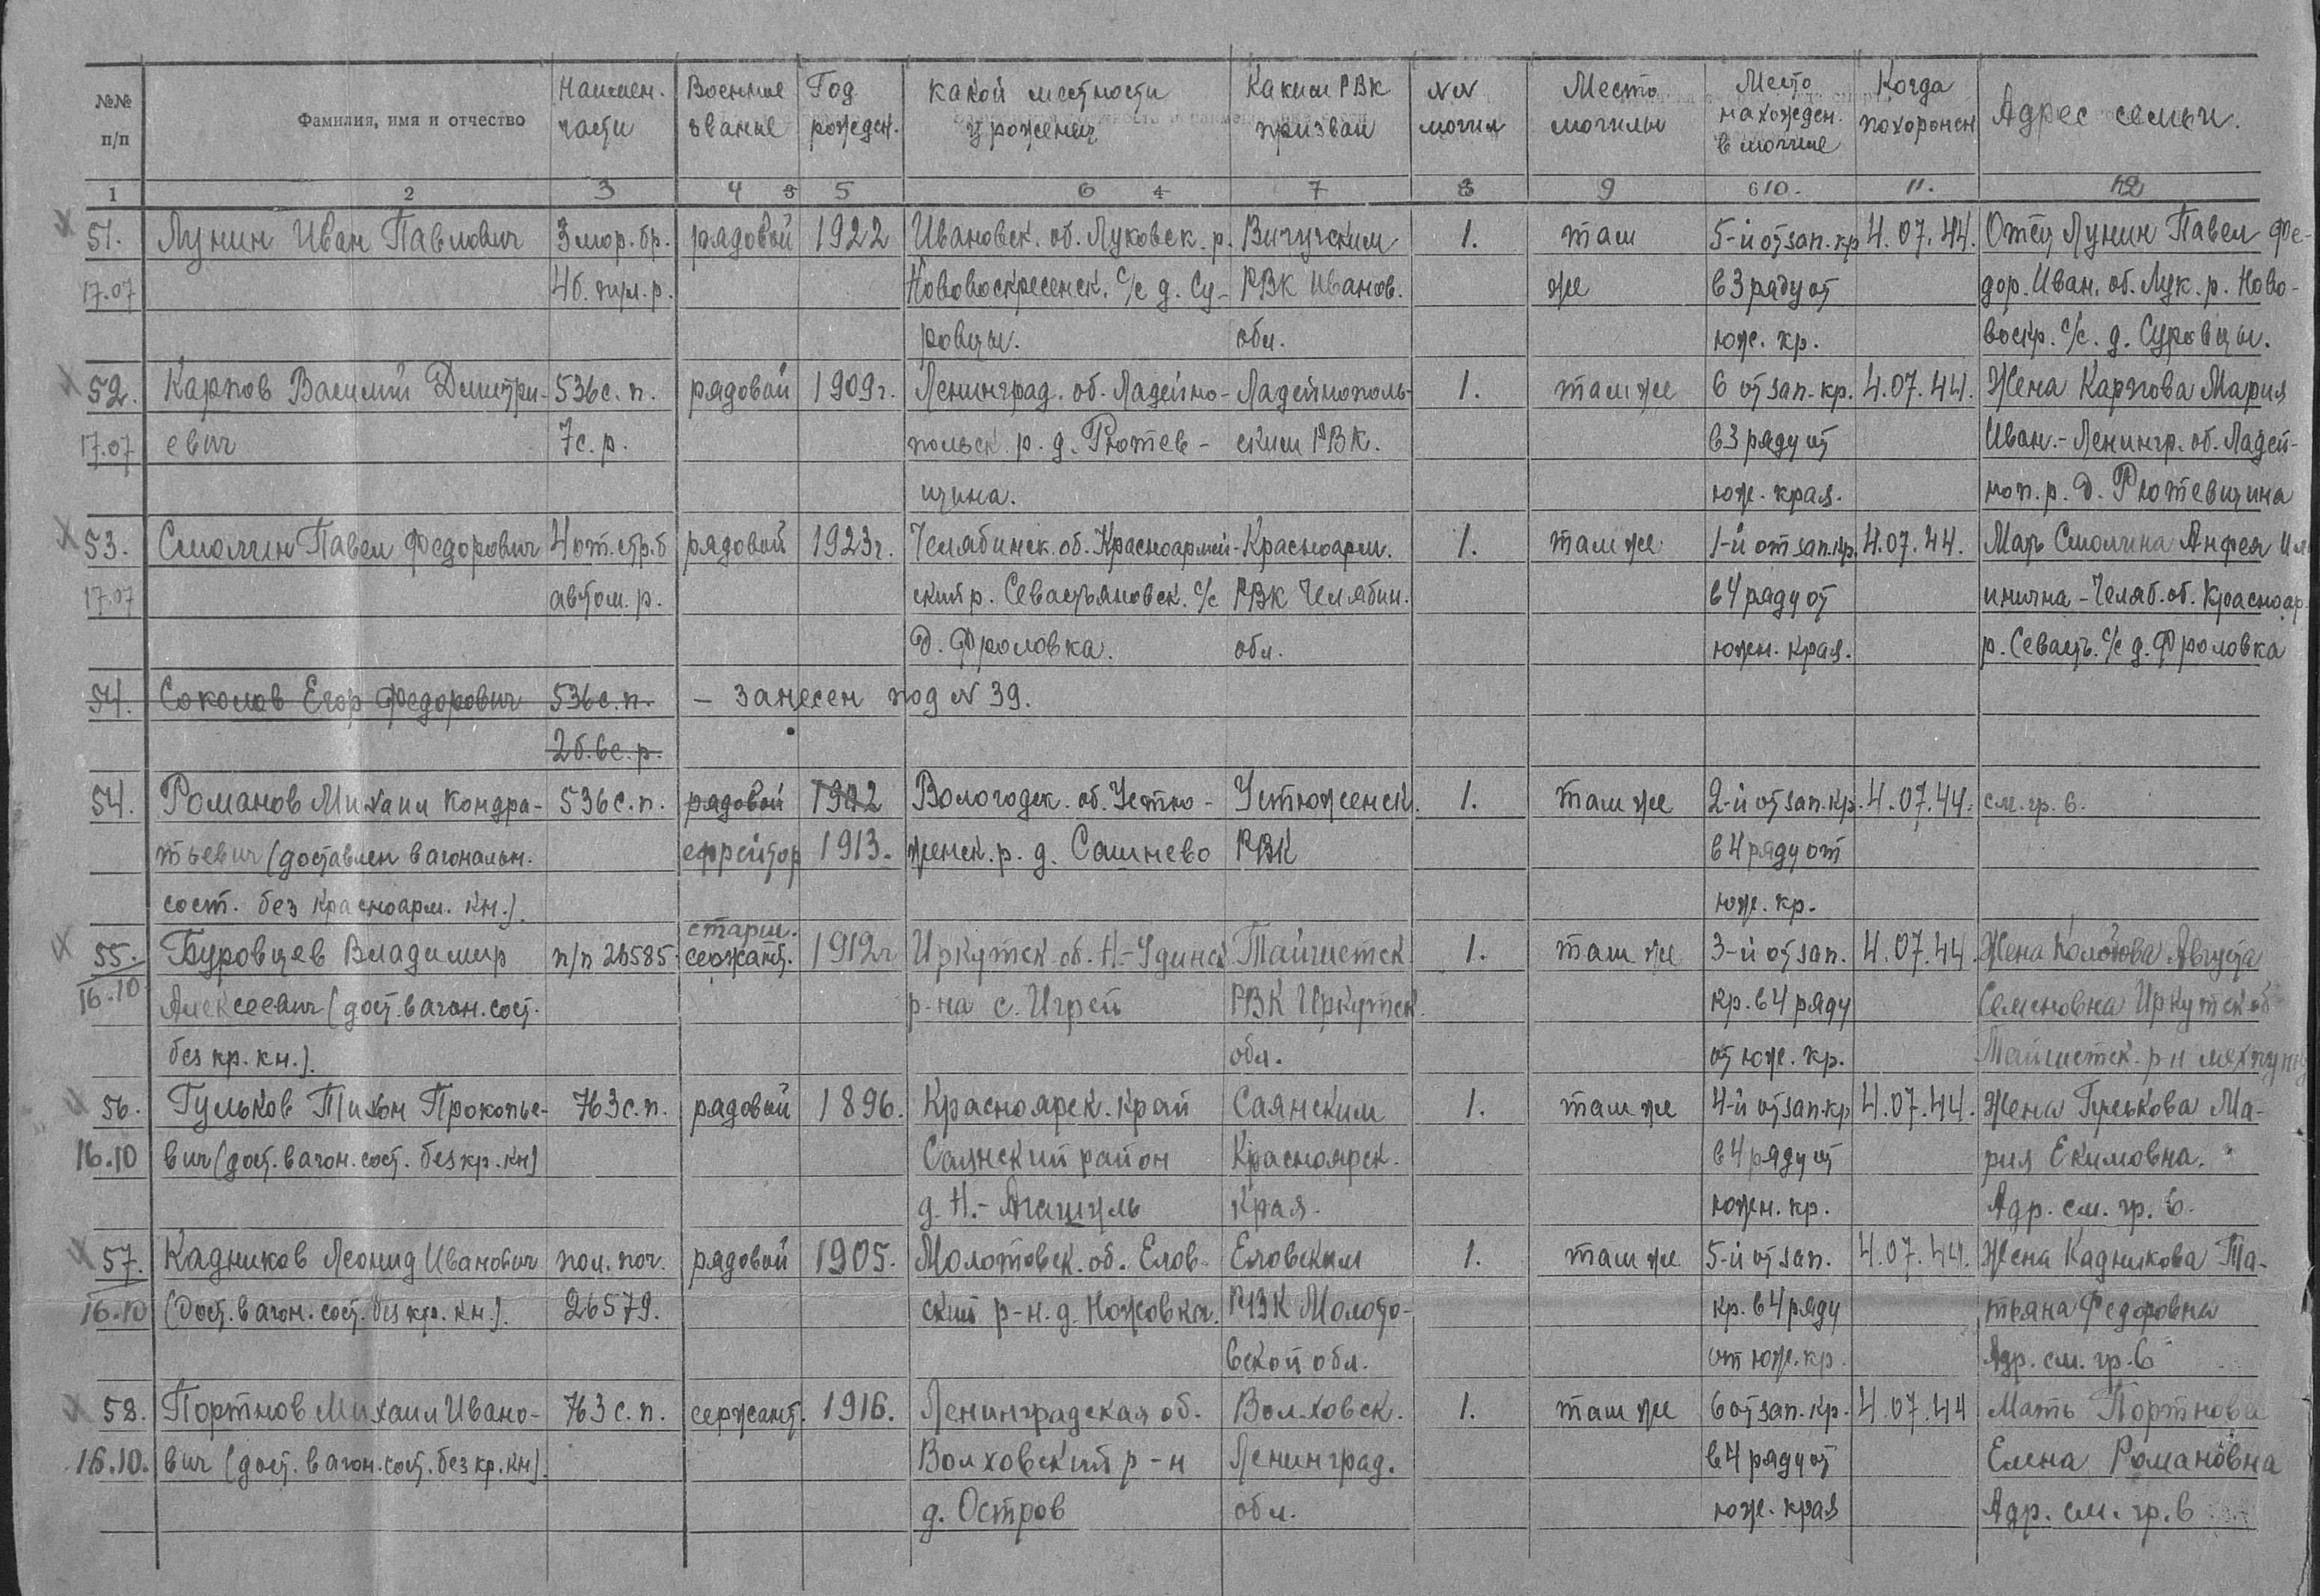 №№ п/п | Фамилия, имя и отчество | Наимен. части | Военное звание | Год рожден. | какой местности уроженец | Каким РВК призван | №№ могил | Место могилы | Место нахожден. в могиле | Когда похоронен | Адрес семьи.
1 | 2 | 3 | 4 | 5 | 6 | 7 | 8 | 9 | 10. | 11. | 12
51. | Лунин Иван Павлович | 3 мор. бр. | рядовой | 1922 | Ивановск. об. Луковск. р. | Вичугским | 1. | там | 5-й от зап. кр | 4.07.44. | Отец Лунин Павел Фе-
17.07 | 4б. пул. р. | Нововоскресенск. с/с д. Су- | РВК Иванов. | же | в 3 ряду от | дор. Иван. об. Лук. р. Ново-
ровцы. | обл. | юж. кр. | воскр. с/с. д. Суровцы.
52. | Карпов Василий Дмитри- | 536 с. п. | рядовой | 1909г. | Ленинград. об. Ладейно- | Ладейнополь- | 1. | там же | 6 от зап. кр. | 4.07.44. | Жена Карпова Мария
17.07 | евич | 7 с. р. | польск. р. д. Рютев- | ским РВК. | в 3 ряду от | Иван. - Ленингр. об. Ладей-
щина. | юж. края. | ноп. р. д. Рютевщина
53. | Смолин Павел Федорович | 4 от. стр. б | рядовой | 1923г. | Челябинск. об. Красноармей- | Красноарм. | 1. | там же | 1-й от зап. кр. | 4.07.44. | Мать Смолина Анфея Иль
17.07 | автом. р. | ский р. Севастьяновск. с/с | РВК Челябин. | в 4 ряду от | инична - Челяб. об. Красноар.
д. Фроловка. | обл. | южн. края. | р. Севасть. с/с д. Фроловка
54. | Соколов Егор Федорович | 536 с. п. | - занесен под № 39.
2б. 6с. р.
54. | Романов Михаил Кондра- | 536 с. п. | рядовой | 1902 | Вологодск. об. Устю- | Устюженск. | 1. | там же | 2-й от зап. кр. | 4.07.44. | см. гр. 6.
тьевич (доставлен в агональн. | ефрейтор | 1913. | женск. р. д. Сашнево | РВК | в 4 ряду от
сост. без красноарм. кн.). | юж. кр.
55. | Буровцев Владимир | п/п 26585 | старш. сержант. | 1912г | Иркутск. об. Н.-Удинск | Тайшетск. | 1. | там же | 3-й от зап. | 4.07.44. | Жена Августа
16.10 | Алексеевич (дост. в агон. сост. | р-на с. Игрей | РВК Иркутск. | кр. в 4 ряду | Семеновна Иркутск об
без кр. кн.). | обл. | от юж. кр. | Тайшетск. р-н
56. | Гульков Тихон Прокопье- | 763 с. п. | рядовой | 1896. | Красноярск. край | Саянским | 1. | там же | 4-й от зап. кр | 4.07.44. | Жена Гулькова Ма-
16.10 | вич (дост. в агон. сост. без кр. кн) | Саянский район | Красноярск. | в 4 ряду от | рия Екимовна.
д. Н.-Агашуль | края. | южн. кр. | Адр. см. гр. 6.
57. | Кадников Леонид Иванович | пол. поч. | рядовой | 1905. | Молотовск. об. Елов- | Еловским | 1. | там же | 5-й от зап. | 4.07.44. | Жена Кадникова Та-
16.10 | (дост. в агон. сост. без кр. кн.). | 26579. | ский р-н. д. Ножовка. | РВК Молото- | кр. в 4 ряду | тьяна Федоровна
вской обл. | от юж. кр. | Адр. см. гр. 6
58. | Портнов Михаил Ивано- | 763 с. п. | сержант. | 1916. | Ленинградская об. | Волховск. | 1. | там же | 6 от зап. кр. | 4.07.44 | Мать Портнова
16.10. | вич (дост. в агон. сост. без кр. кн). | Волховский р-н | Ленинград. | в 4 ряду от | Елена Романовна
д. Остров | обл. | юж. края | Адр. см. гр. 6